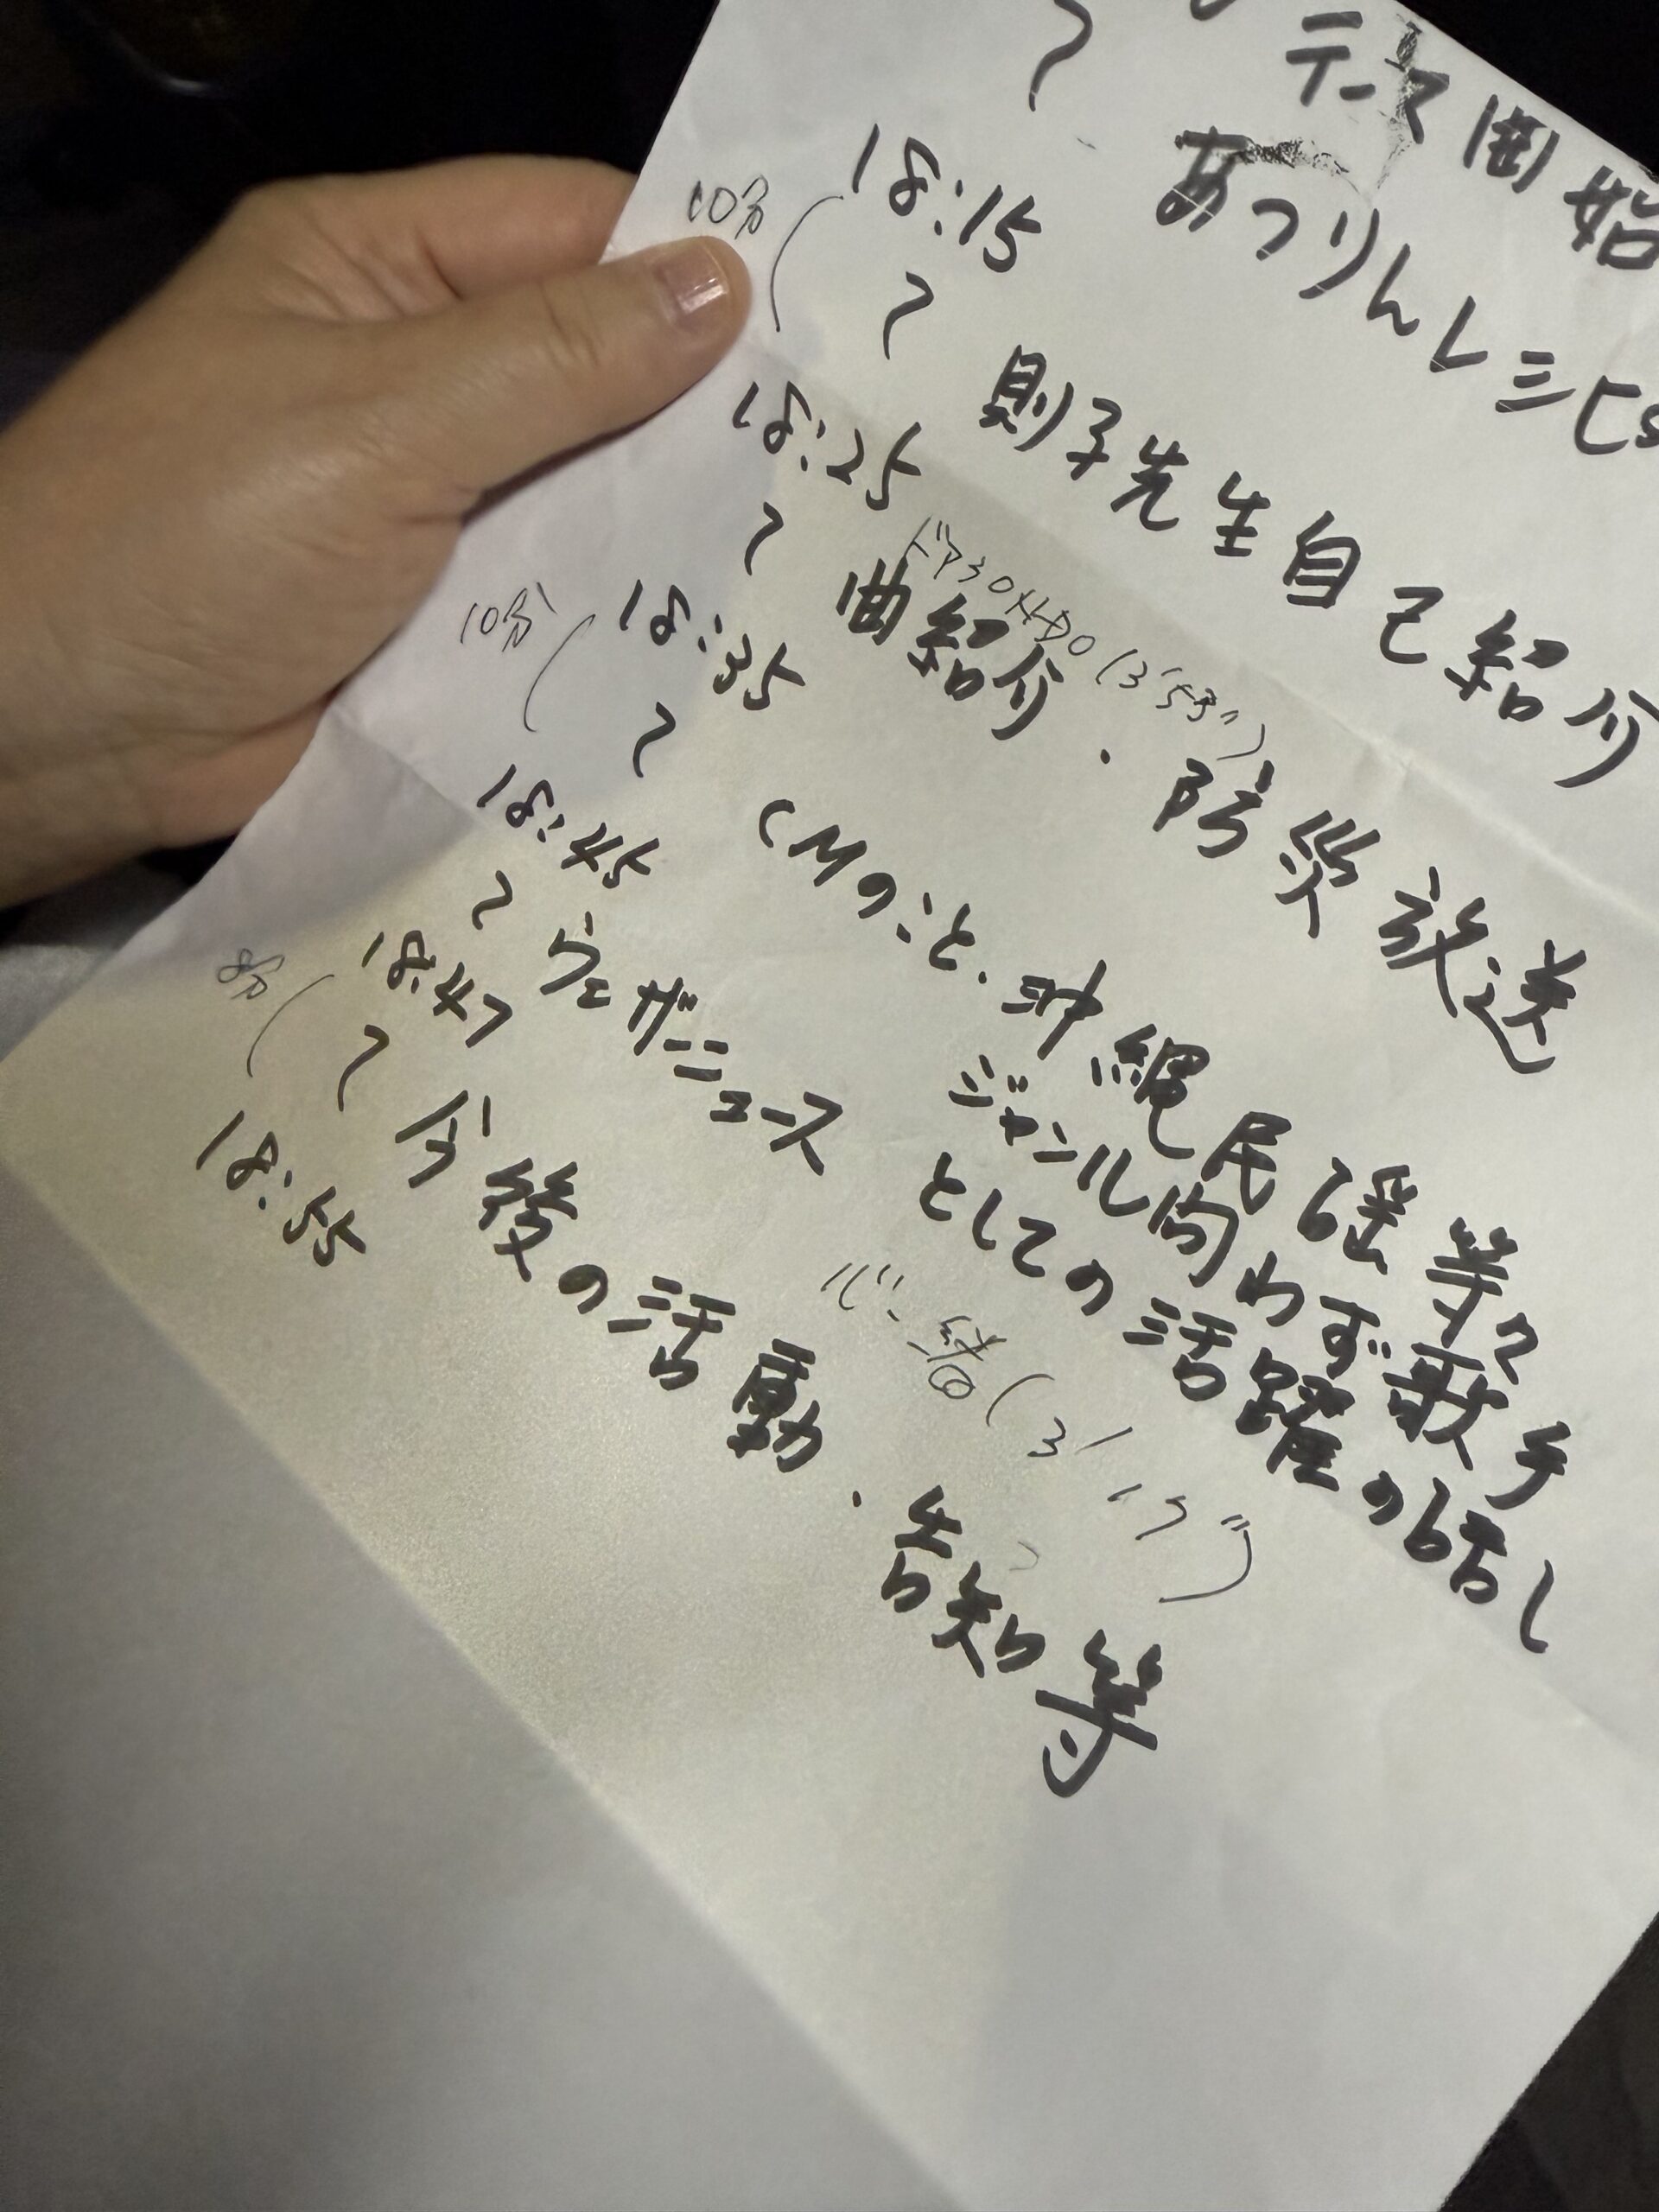 テーマ開始
〜 あつりんレシピ
18:15
10分
〜 則子先生自己紹介
18:25
(3'53")
〜 曲紹介.防災放送
18:35
10分
〜 CMのこと.沖縄民謡等々
ジャンル問わず歌手
としての活躍の話し
18:45
〜 ウェザーニュース
18:47
一緒(3'17")
8分
〜 今後の活動.告知等
18:55